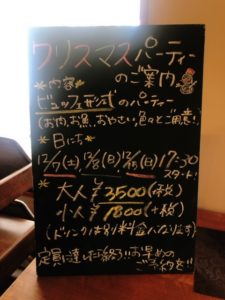 クリスマスパーティー
のご案内
*内容*
ビュッフェ形式のパーティー
(お肉、お魚、おやさい、色々とご用意!
*日にち*
(土) (日) (日)17:30
スタート!
*大人¥3500(+税)
小人¥1800(+税)
(ドリンクは別料金になります)
定員に達したら終了!!お早めの
ご予約を!!